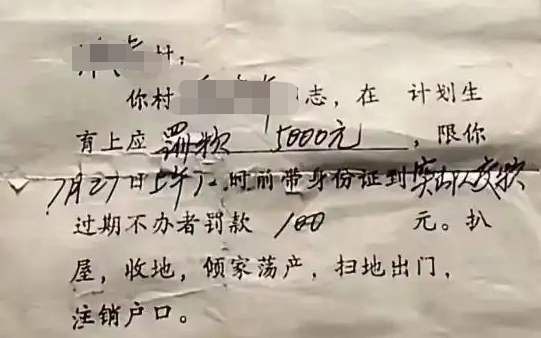 你村 志，在 计划生
育上应 罚款 5000元 ，限你
7月27日上午 时前带身份证到 交款
过期不办者罚款 100 元。扒
屋，收地，倾家荡产，扫地出门，
注销户口。